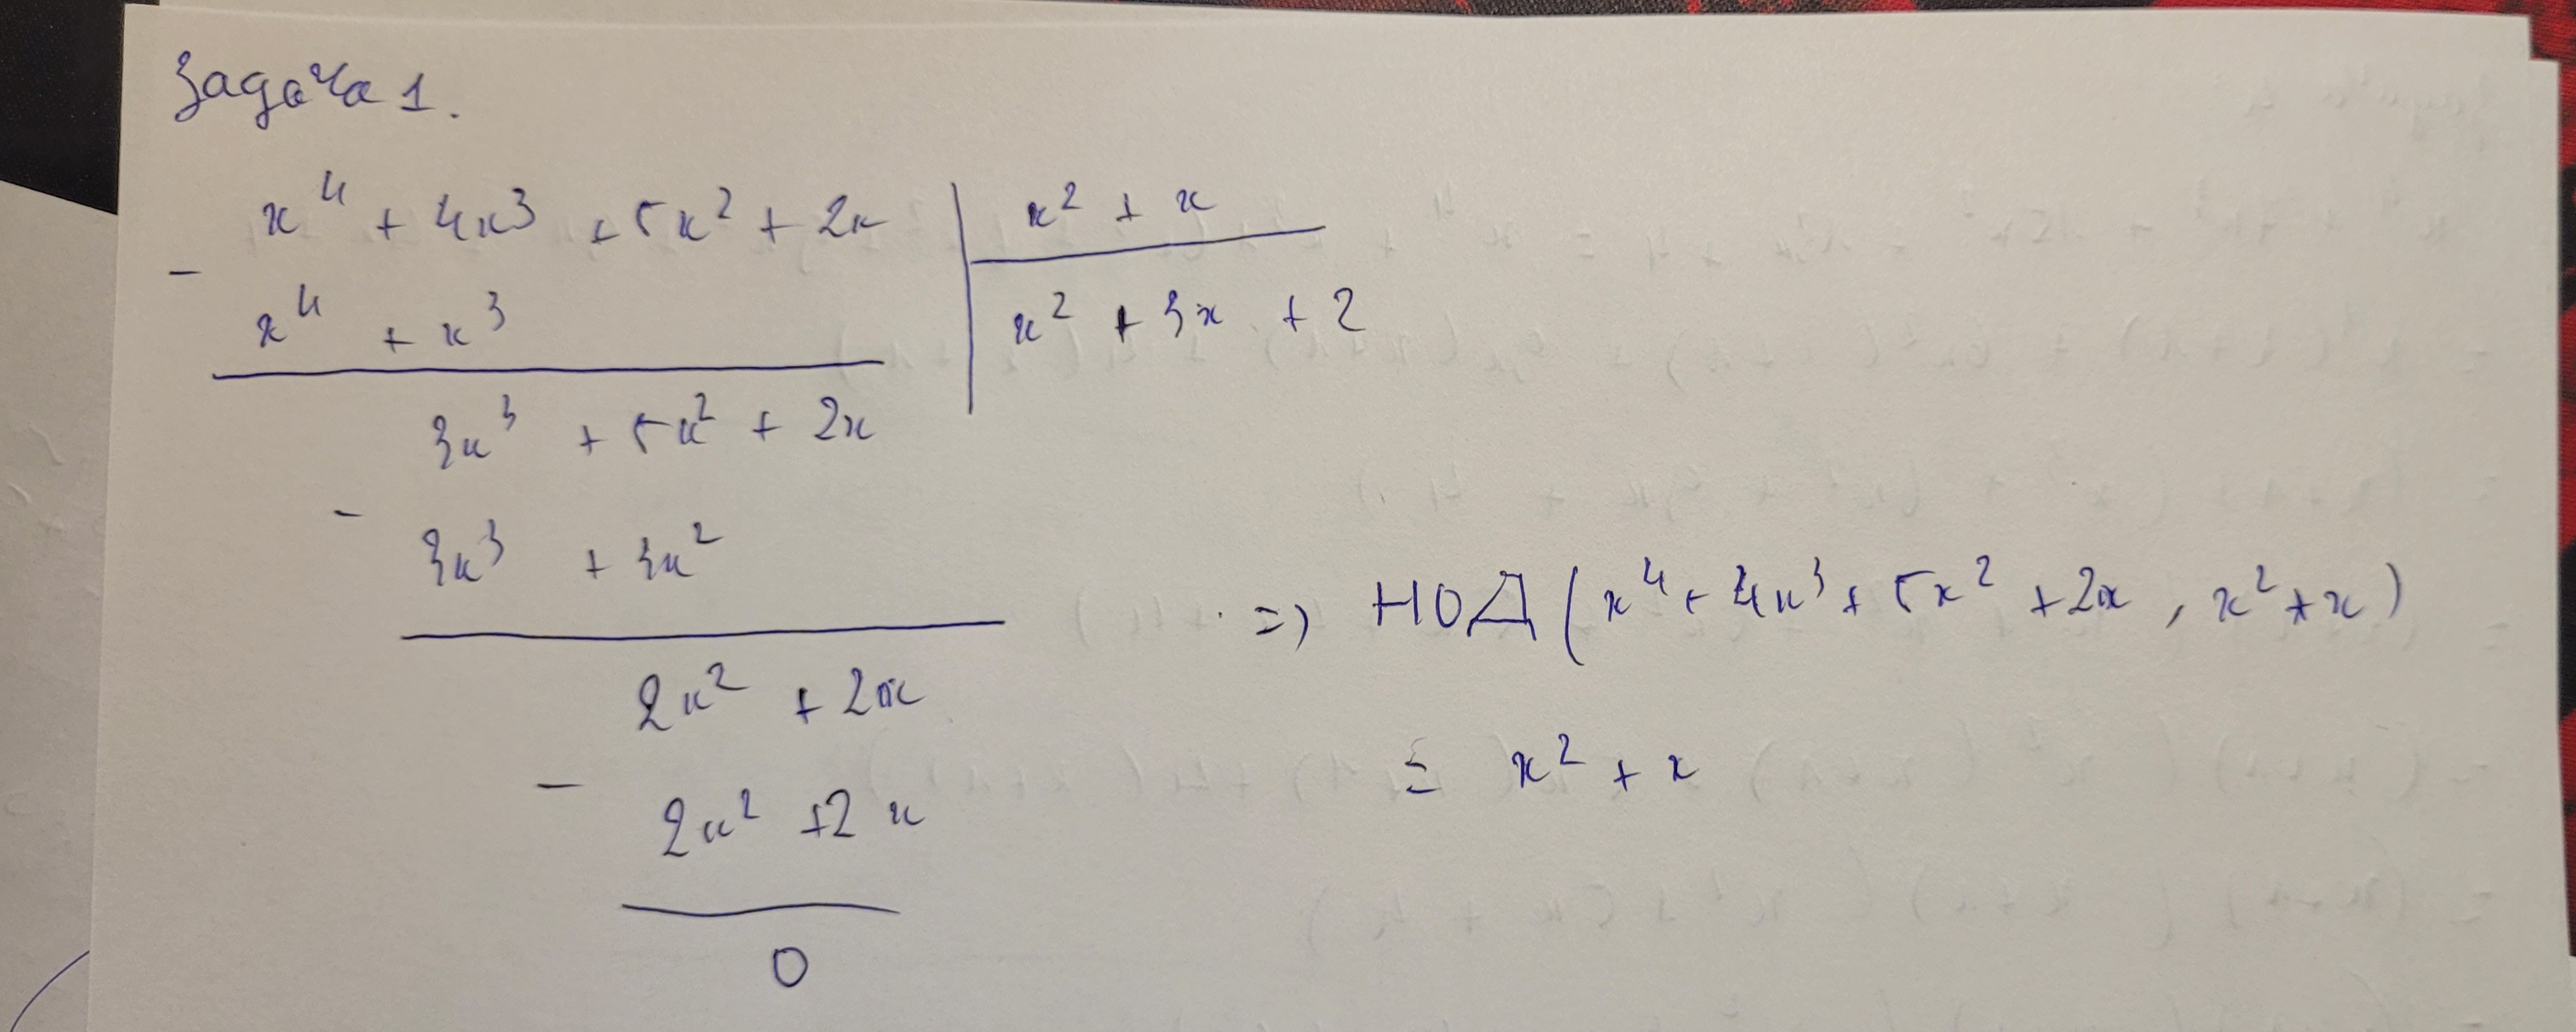 Задача 1.
x⁴ + 4x³ + 5x² + 2x | x² + x
− x⁴ + x³ | x² + 3x + 2
3x³ + 5x² + 2x
− 3x³ + 3x²
2x² + 2x
− 2x² + 2x
0
=> НОД (x⁴ + 4x³ + 5x² + 2x , x² + x)
= x² + x